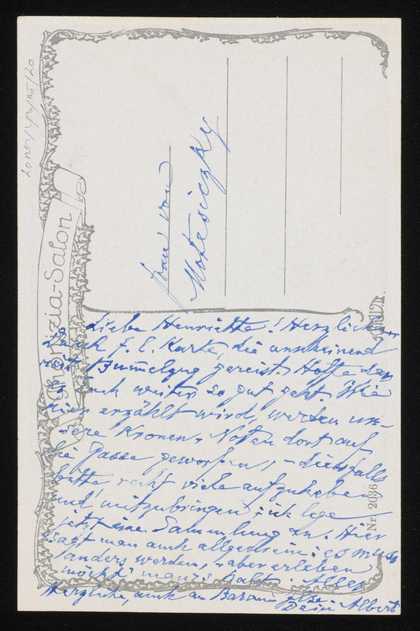 Frau von
Motesiczky
Phönizia-Salon
Nr. 2036
Liebe Henriette! Herzlichen
Dank f. l. Karte, die anscheinend
mit Bummelzug gereist. Hoffe dass
auch weiter so gut geht. Wie
hier erzählt wird, werden un-
sere Kronen-Noten dort auf
die Gasse geworfen, – diesfalls
bitte recht viele aufzuheben
und mitzubringen, ich lege
jetzt eine Sammlung an. Hier
sagt man auch allgemein: es muss
anders werden, – aber erleben
möcht' man's halt. Alles
Herzliche, auch an Baronin
Dein Albert